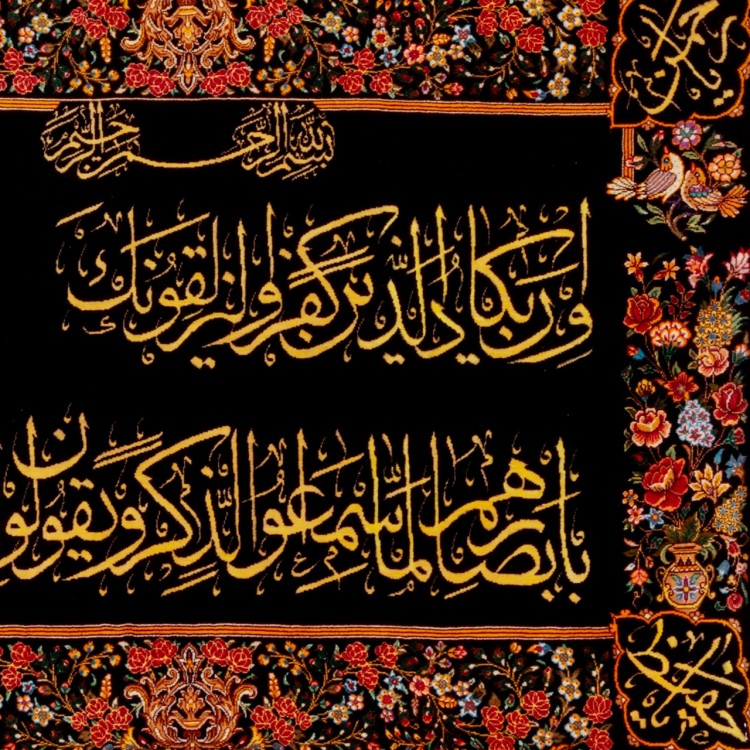 يا رحمن
بسم الله الرحمن الرحيم
وإن يكاد الذين كفروا ليزلقونك
بأبصارهم لما سمعوا الذكر ويقولون
يا حفيظ